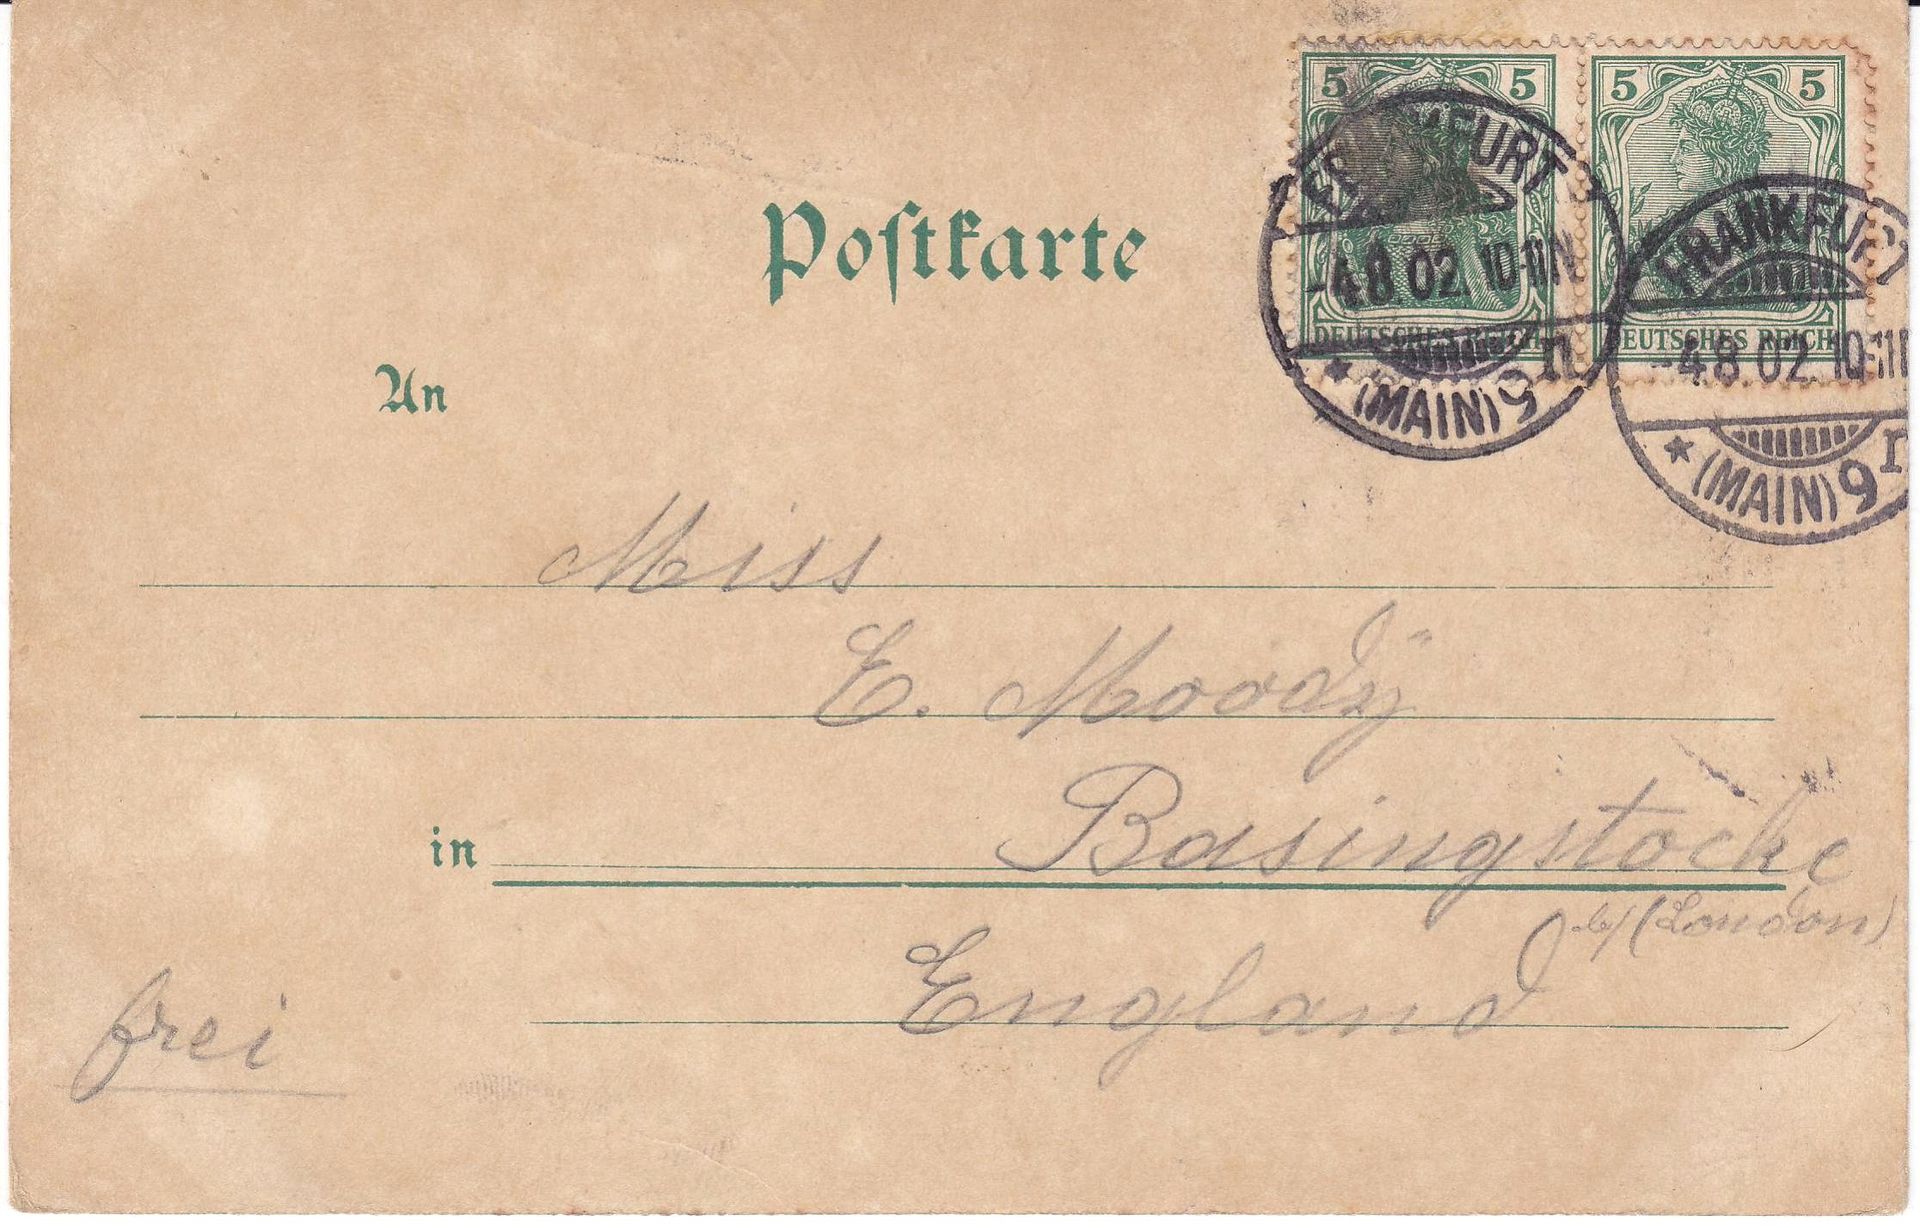 5 5 5 5
DEUTSCHES REICH DEUTSCHES REICH
FRANKFURT
-4.8.02. 10-11N
* (MAIN) 9 n
FRANKFURT
-4.8.02. 10-11N
* (MAIN) 9 n
Postkarte
An
Miss
E. Moody
in Basingstocke
b/ (London)
England
frei